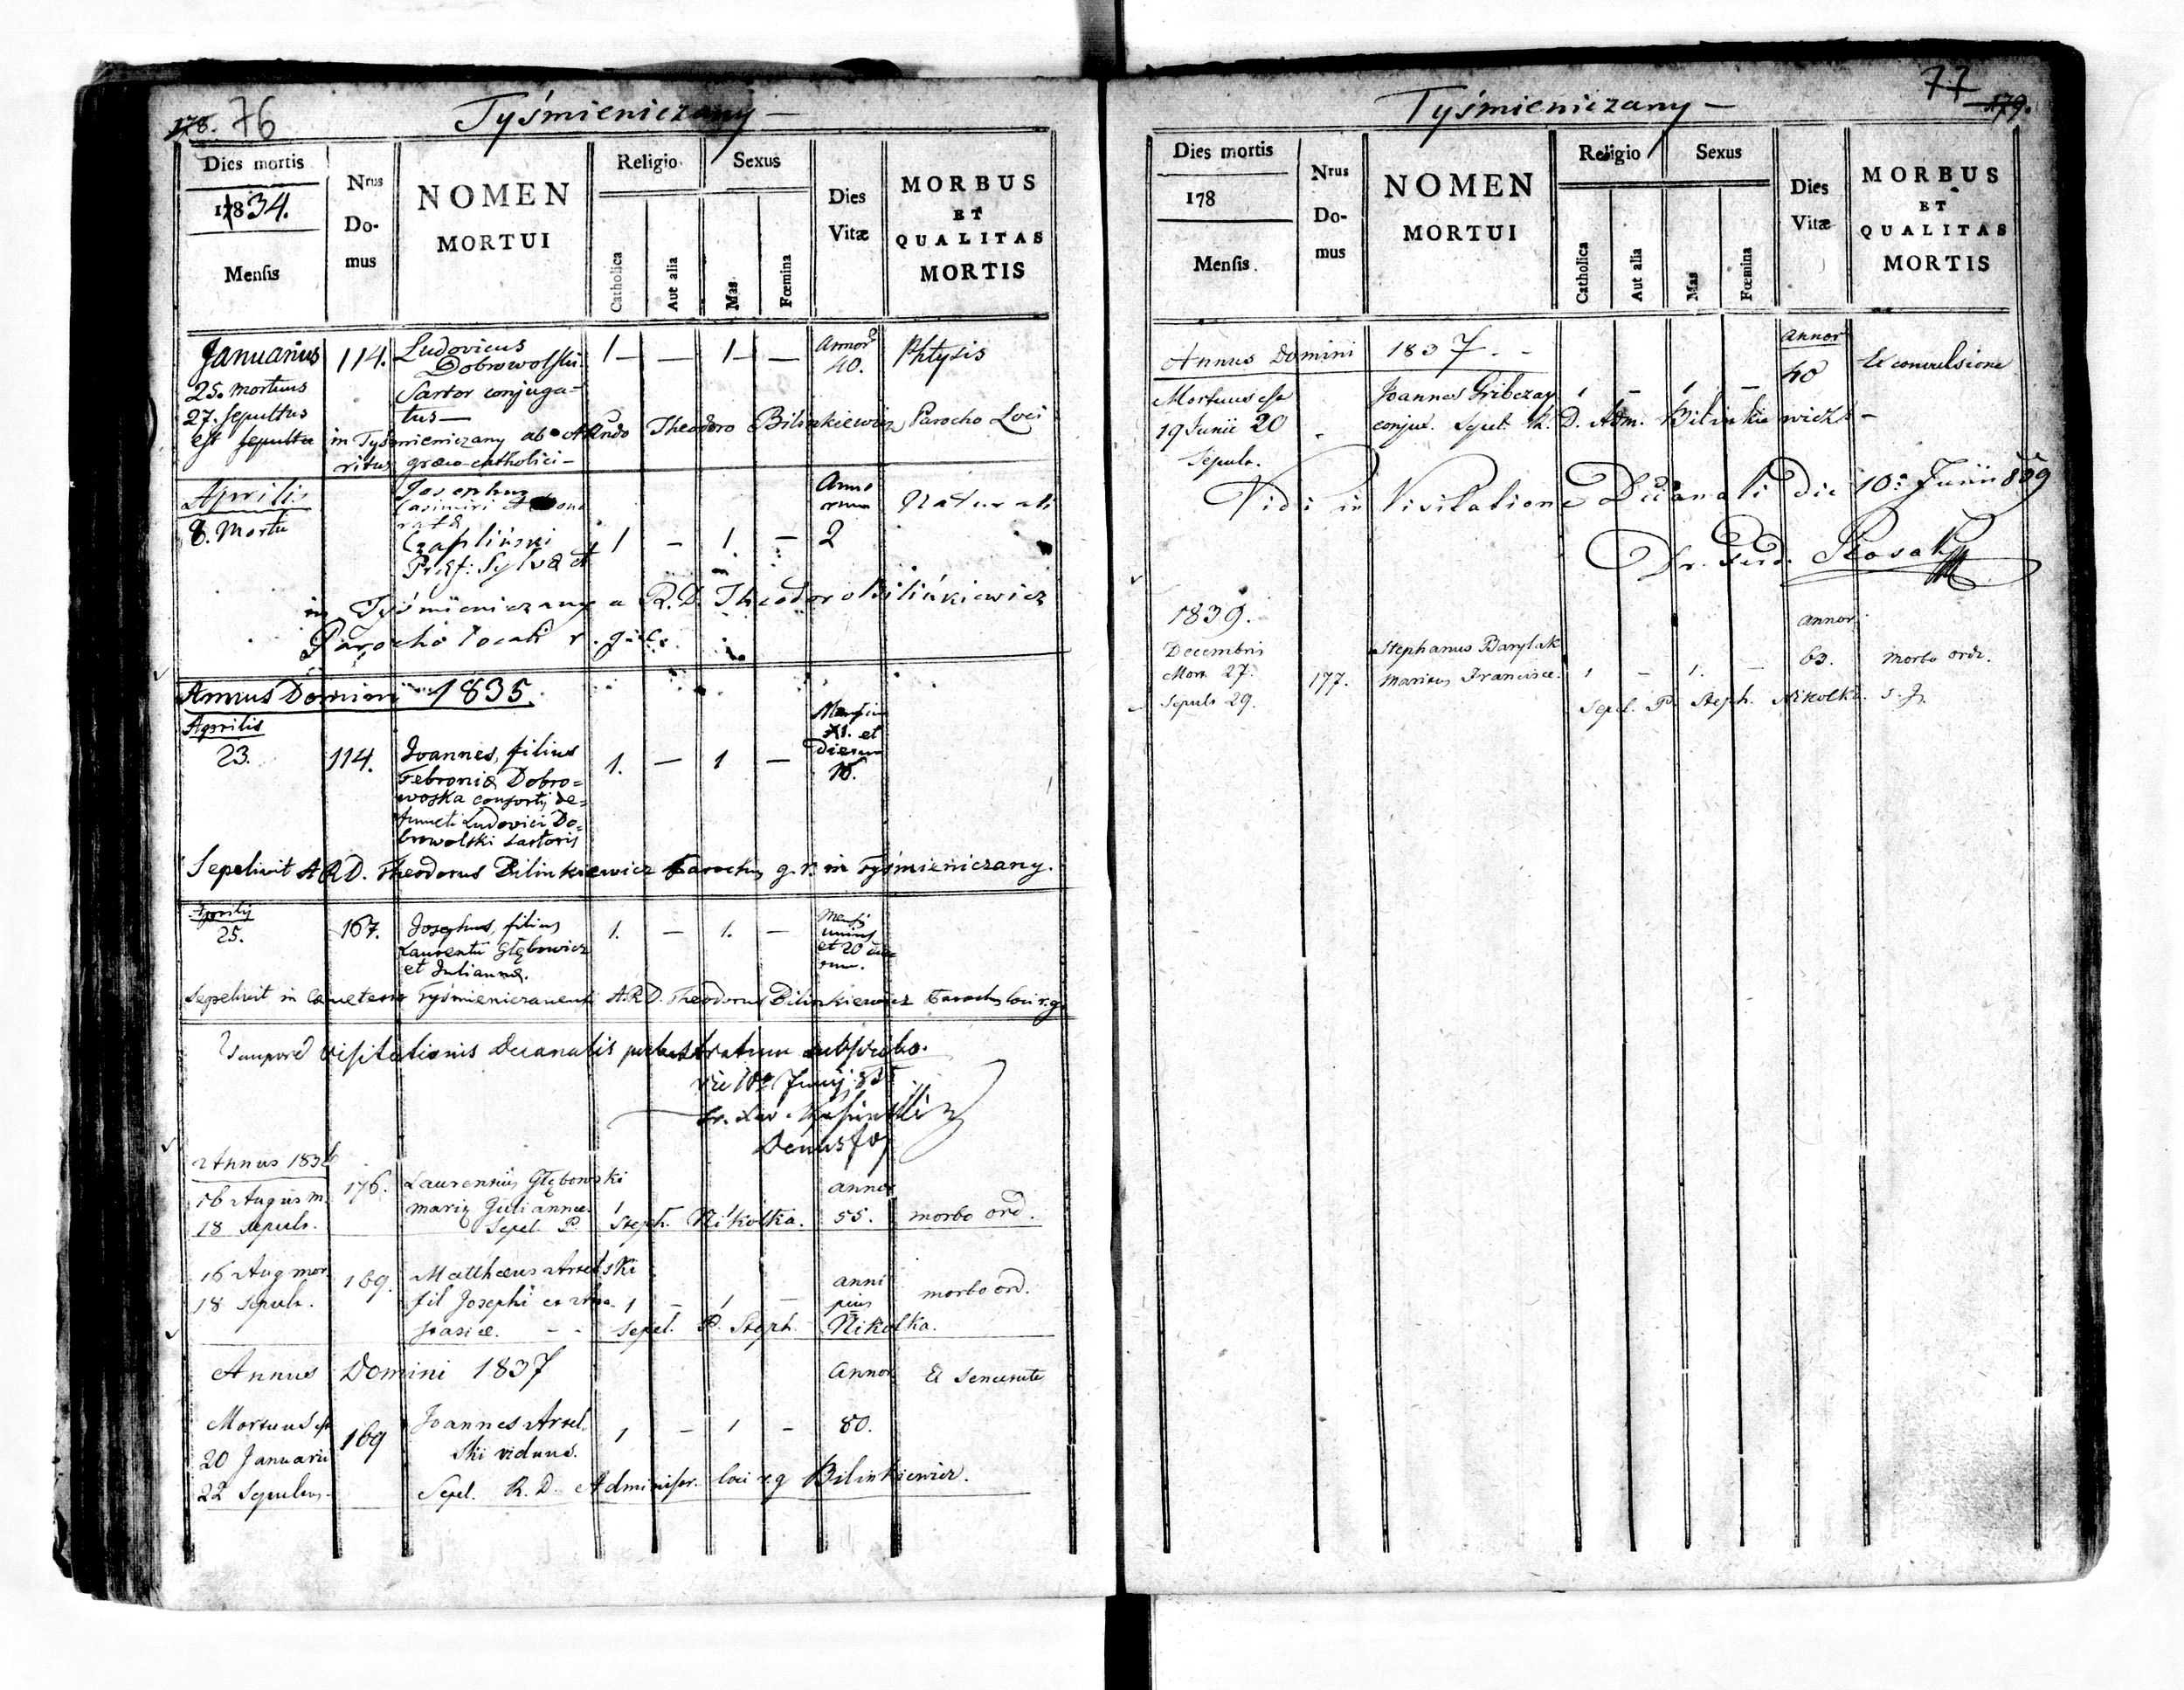 178. 76
Tyśmieniczany —
Dies mortis
Nrus Domus
NOMEN MORTUI
Religio
Sexus
Dies Vitæ
MORBUS ET QUALITAS MORTIS
17834.
Mensis
Catholica
Aut alia
Mas
Fœmina
Januarius 114. Ludovicus 1 — — 1 — — Annor 40. Phtysis
Dobrowolski
25. mortuus Sartor conjuga=
27. sepultus tus —
est sepultus in Tyśmieniczany ab A Rndo Theodoro Bilinkiewicz Parocho Loci
ritus græco-catholici —
Aprilis Josephus Anno Naturali
Casimiri et orum
8. Mortu Czapliński 1 — 1. — 2
Præf: Sylvæ et
in Tyśmieniczany a R. D. Theodoro Bilińkiewicz
Parocho locali r. g. c.
Annus Domini 1835.
Aprilis Mensium
XI. et
23. 114. Joannes, filius 1. — 1 — dierum
Febroniæ Dobro= 18.
woska consortis de=
functi Ludovici Do=
browolski sartoris
Sepelivit A R D. Theodorus Bilinkiewicz Parochus g. r. in Tyśmieniczany.
Aprilis Mensis
25. 167. Josephus, filius 1. — 1. — unius
Laurentii Głębowicz et 20 die
et Julianna. rum.
Sepelivit in Cœmeterio Tyśmieniczanensi A.R.D. Theodorus Bilinkiewicz Parochus loci r. g.
Tempore visitationis decanalis perlustratum subscribo.
die 10a Junij 835
Annus 1836
16 Augus m. 176. Laurentius Głębowski annor
mariz Juliannæ. 1 1
18 sepult. Sepel. P. Steph. Nikolka. 55. morbo ord.
16 Aug mor 169. Matthæus Arselski anni
18 sepult. fil Josephi et 1 — 1 — morbo ord.
sepel. P. Steph. Nikolka.
Annus Domini 1837 Annor Ex senectute
Mortuus est 169 Joannes Arsel 1 — 1 — 80.
20 Januarii ski viduus.
22 Sepultus. Sepel. R. D. Administr. loci r. g Bilinkiewicz.
77 179.
Tyśmieniczany —
Dies mortis
Nrus Domus
NOMEN MORTUI
Religio
Sexus
Dies Vitæ
MORBUS ET QUALITAS MORTIS
178
Mensis.
Catholica
Aut alia
Mas
Fœmina
Annus Domini 1837. — Annor
40 Ex convulsione
Mortuus est Joannes Gribczay 1 — 1 —
19 Junii 20 conjux. Sepel. R. D. Adm. Bilinkiewicz —
Sepult.
Vidi in Visitatione Decanali die 10a Junii 839
1839. annor.
Decembris Stephanus Barylak
Mort 27. 177. Maritus Franciscæ. 1 — 1. — 63. morbo ordi.
Sepult 29. Sepel. P. Steph. Nikolka. S. J.